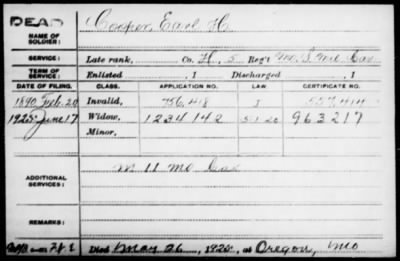 DEAD
NAME OF SOLDIER: Cooper, Earl H.
SERVICE: Late rank, Co. H, 5 Reg't M.S. Mo Cav
TERM OF SERVICE: Enlisted , 1 Discharged , 1
DATE OF FILING. CLASS. APPLICATION NO. LAW. CERTIFICATE NO.
1890 Feb. 20 Invalid, 756,418 J 557,414
1925 June 17 Widow, 1234142 5-1-20 963217
Minor,
ADDITIONAL SERVICES: M 11 Mo Cav
REMARKS:
Died May 26, 1925, at Oregon, Mo